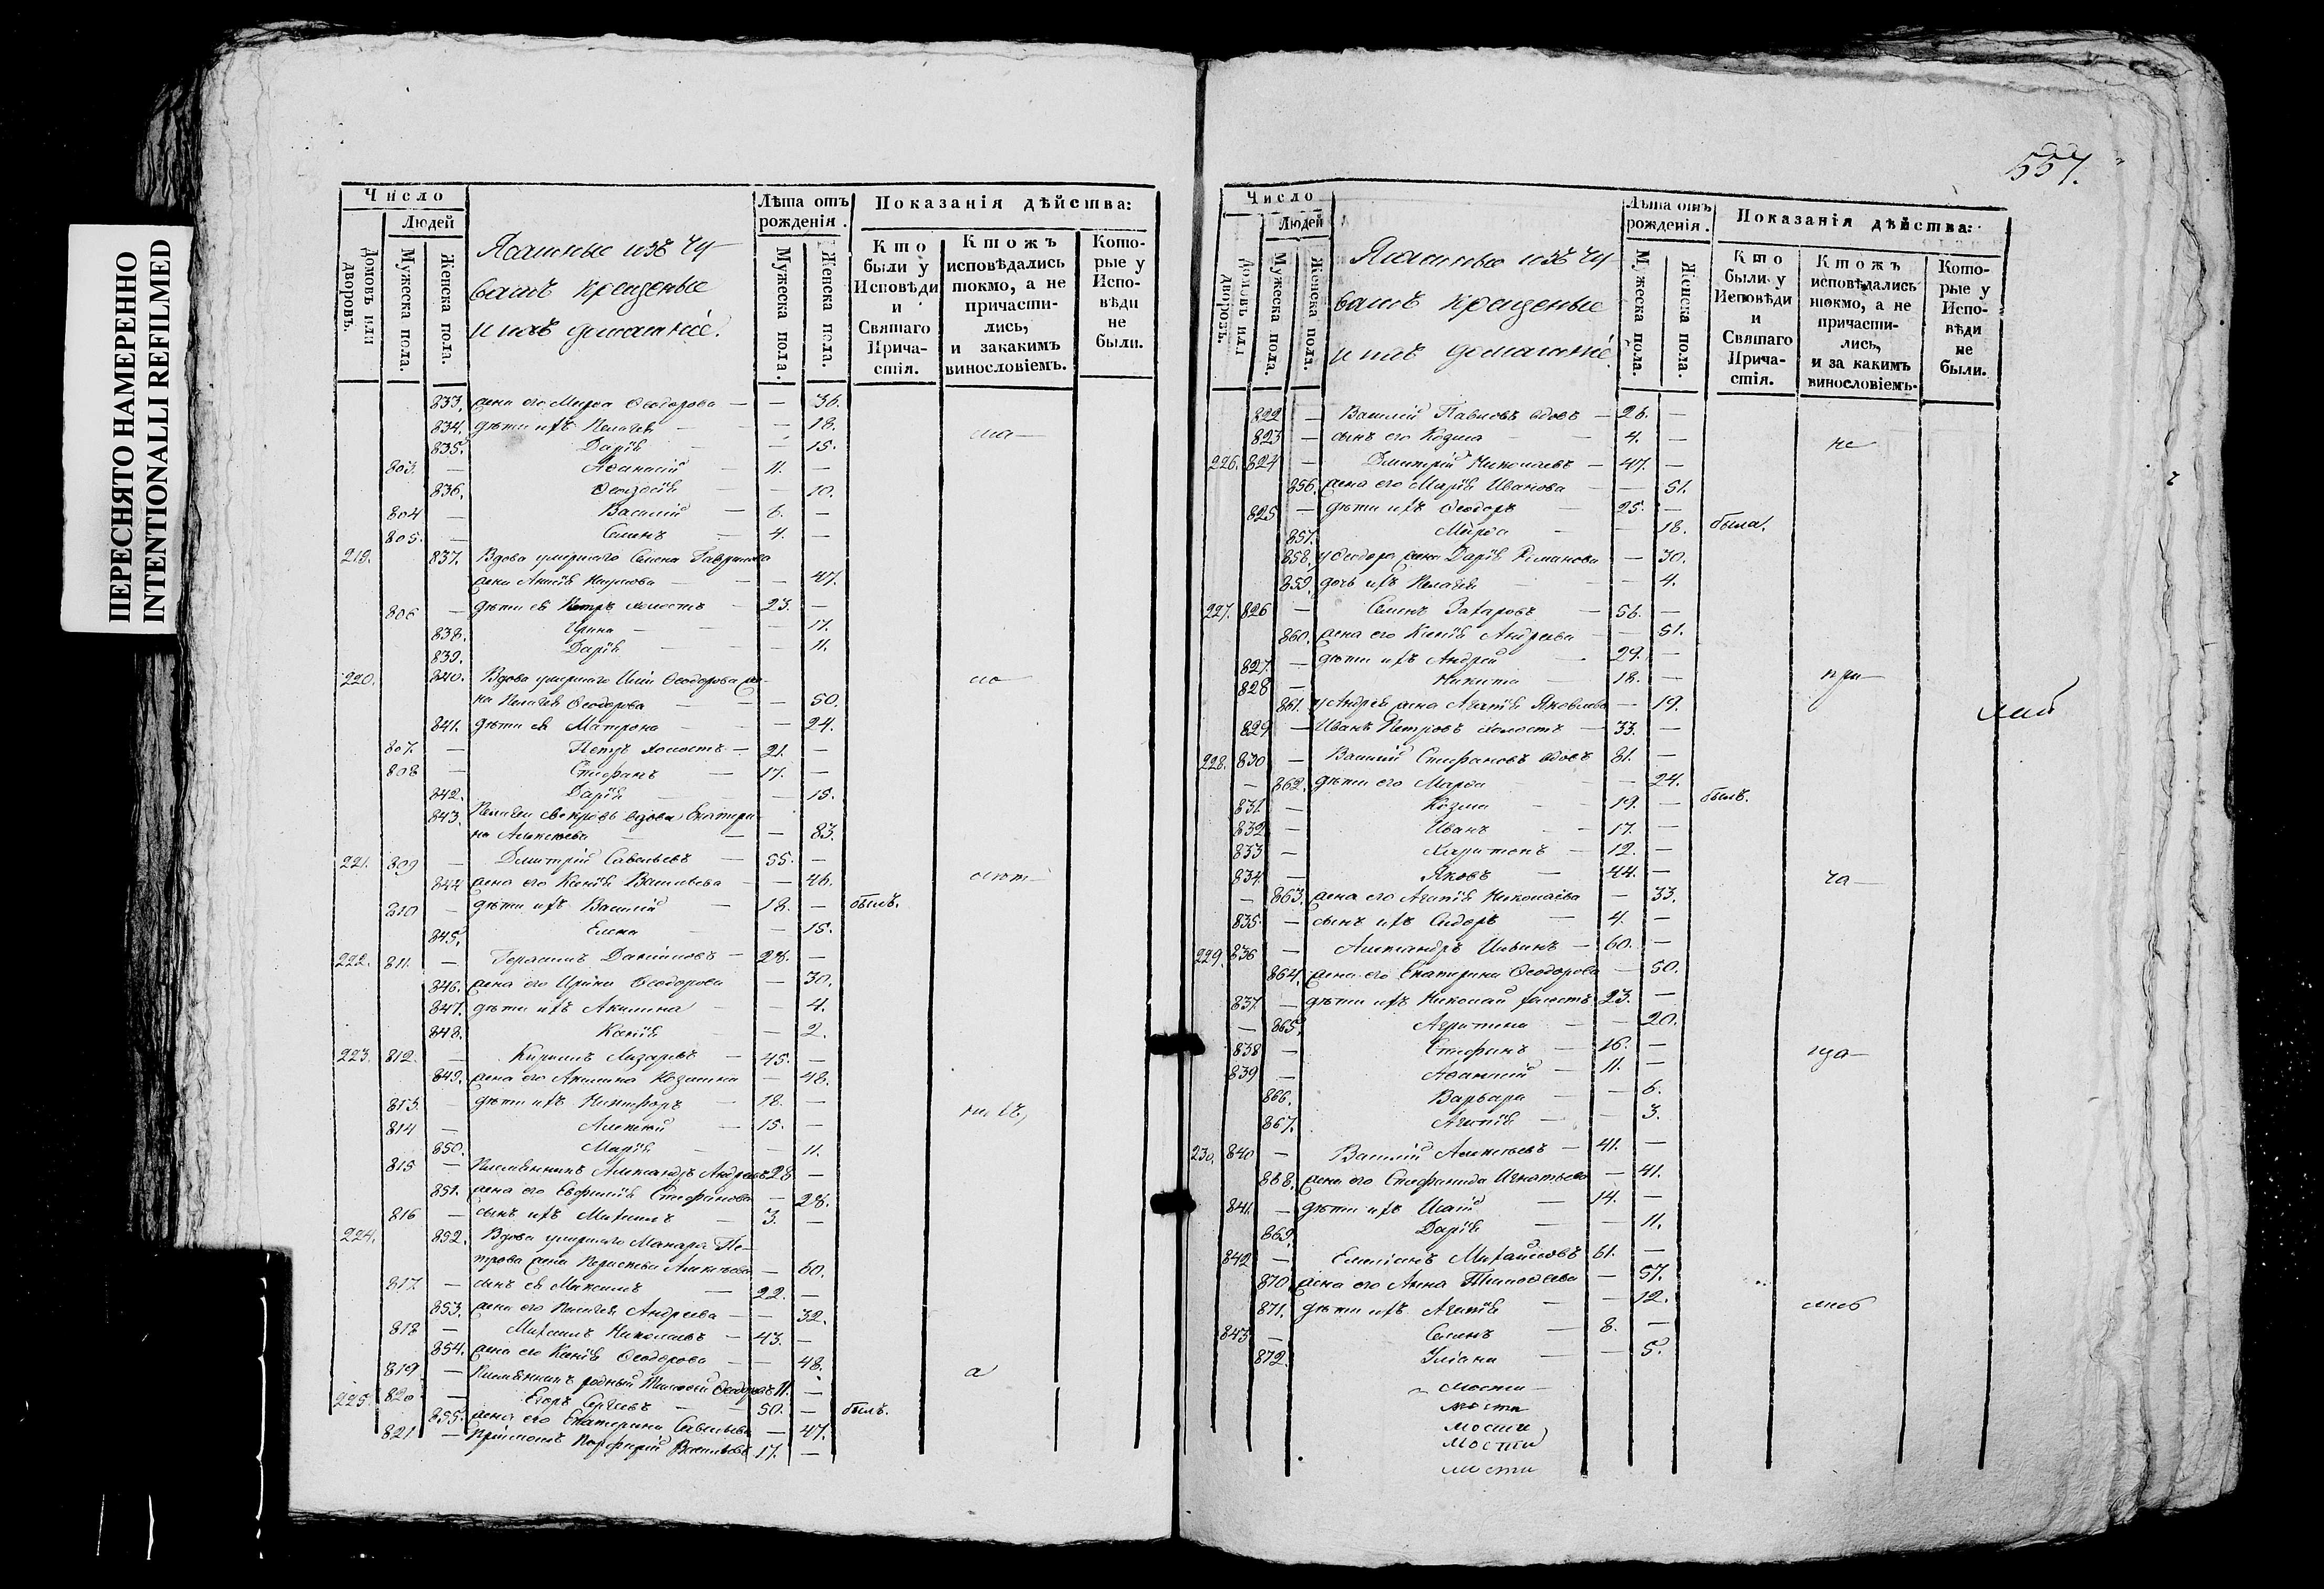 ПЕРЕСНЯТО НАМЕРЕННО
INTENTIONALLI REFILMED
557.
Число
Людей
Домовъ или дворовъ.
Мужеска пола.
Женска пола.
Ясашные изъ Чу-
вашъ крещеные
и ихъ домашніе.
Лѣта отъ рожденія.
Мужеска пола.
Женска пола.
Показанія дѣйства:
Кто были у Исповѣди и Святаго Причастія.
Ктожъ исповѣдались токмо, а не причастились, и закакимъ винословіемъ.
Которые у Исповѣди не были.
833. жена его Марѳа Ѳеодорова — — 36.
834. дѣти ихъ Пелагея — — 18.
835. Дарія — — 15.
803. — Аѳанасій — 11. —
836. Ѳеодосія — — 10.
804 — Василій — 6. —
805. — Семенъ — 4. —
219. 837. Вдова умершаго Семена Гаврилова
жена Анисія Наумова — — 47.
806 — дѣти ея Петръ холостъ — 23. —
838. Ирина — — 17.
839. Дарія — — 11.
220. 840. Вдова умершаго Ильи Ѳеодорова же-
на Пелагея Ѳеодорова — — 50.
841. дѣти ея Матрона — — 24.
807. — Петръ холостъ — 21. —
808 — Стефанъ — 17. —
842. Дарія — — 15.
843. Пелагеи свекровь вдова Екатери-
на Алексѣева — — 83.
221. 809 — Дмитрій Савельевъ — 55. —
844 жена его Ксенія Васильева — — 46.
810 — дѣти ихъ Василій — 18. — былъ.
845. Елена — 15.
222. 811. — Герасимъ Даниловъ — 28. —
846. жена его Ирина Ѳеодорова — 30.
847. дѣти ихъ Акилина — — 4.
848. Ксенія — 2.
223. 812. — Кирилъ Лазаревъ — 45. —
849. жена его Акилина Козмина — 48.
813. — дѣти ихъ Никифоръ — 18. —
814 — Алексѣй — 15. —
850. Марія — — 11.
815 — Племянникъ Александръ Андреевъ 28 —
851. жена его Евфимія Стефанова — 28.
816 — сынъ ихъ Михаилъ — 3. —
224. 852. Вдова умершаго Макара Пе-
трова жена Параскева Алексѣева — 60.
817 — сынъ ея Максимъ — 22. —
853. жена его Пелагея Андреева — — 32.
818 — Михаилъ Николаевъ — 43. —
854. жена его Ксенія Ѳеодорова — — 48.
819 — Племянникъ родный Тимоѳей Ѳеодоровъ 11. —
225. 820 — Егоръ Сергѣевъ — 50. — былъ.
855. жена его Екатерина Савельева — 47.
821. — Пріймышъ Порфирій Васильевъ 17. —
Число
Людей
Домовъ или дворовъ.
Мужеска пола.
Женска пола.
Ясашные изъ Чу-
вашъ крещеные
и ихъ домашніе.
Лѣта отъ рожденія.
Мужеска пола.
Женска пола.
Показанія дѣйства:
Кто были у Исповѣди и Святаго Причастія.
Ктожъ исповѣдались токмо, а не причастились, и за какимъ винословіемъ.
Которые у Исповѣди не были.
822 — Василій Павловъ вдовъ — 26. —
823 — сынъ его Козма — 4. — не
226. 824 — Дмитрій Николаевъ — 47. —
856. жена его Марія Иванова — — 51.
825 — дѣти ихъ Ѳеодоръ — 25. —
857. Марѳа — — 18. была.
858. у Ѳеодора жена Дарія Романова — 30.
859. дочь ихъ Пелагея — — 4.
227. 826 — Семенъ Захаровъ — 56. —
860. жена его Ксенія Андреева — — 51.
827. — дѣти ихъ Андрей — 29. —
828 — Никита — 18. — при-
861. у Андрея жена Агаѳія Яковлева — 19.
829 — Иванъ Петровъ холостъ — 33. —
228. 830 — Василій Стефановъ вдовъ 81. —
— 862. дѣти его Марѳа — — 24.
831. — Козма — 19. — былъ.
832 — Иванъ — 17. —
833 — Харитонъ — 12. —
834. — Яковъ — 44. — ча-
— 863. жена его Агаѳія Николаева — 33.
835. — сынъ ихъ Сидоръ — 4. —
229. 836 — Александръ Ильинъ — 60. —
864. жена его Екатерина Ѳеодорова — 50.
837. — дѣти ихъ Николай холостъ 23. —
— 865. Агрипина — — 20.
838 — Стефанъ — 16. —
839 — Аѳанасій — 11. —
866. Варвара — — 6.
867. Агаѳія — — 3.
230. 840 — Василій Алексѣевъ — 41. —
868. жена его Стефанида Игнатьева — 41.
841. — дѣти ихъ Исай — 14. —
869. Дарія — — 11.
842 — Емеліанъ Михайловъ 61. —
870. жена его Анна Тимоѳеева — 57.
871. дѣти ихъ Агаѳія — — 12.
843 — Семенъ — 8. —
872. Уліана — — 5.
мости
мости
мости
мости
мости